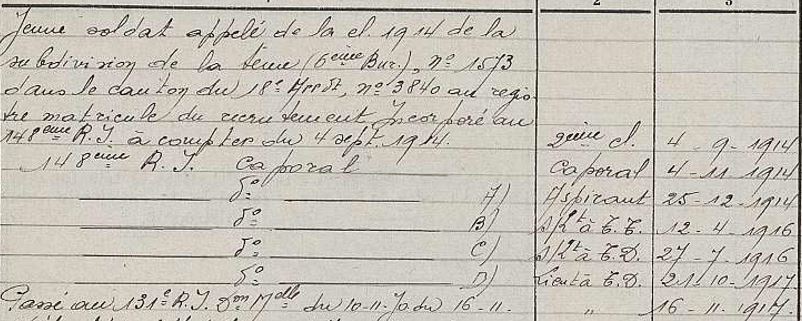 2 3
Jeune soldat appelé de la cl. 1914 de la
subdivision de la Seine (6ème Bur.), nº 1573
dans le canton du 18e Arrdt, nº 3840 au regis-
tre matricule du recrutement, Incorporé au
148ème R.I. à compter du 4 sept. 1914. 2ème cl. 4 - 9 - 1914
148ème R.I. Caporal Caporal 4 - 11 - 1914
dº A) Aspirant 25 - 12 - 1914
dº B) S/Lt à T.T. 12 - 4 - 1916
dº C) S/Lt à T.D. 27 - 7 - 1916
dº D) Lieut à T.D. 21 - 10 - 1917
Passé au 131e R.I. Don Mlle du 10-11-Jo du 16-11. " 16 - 11 - 1917.